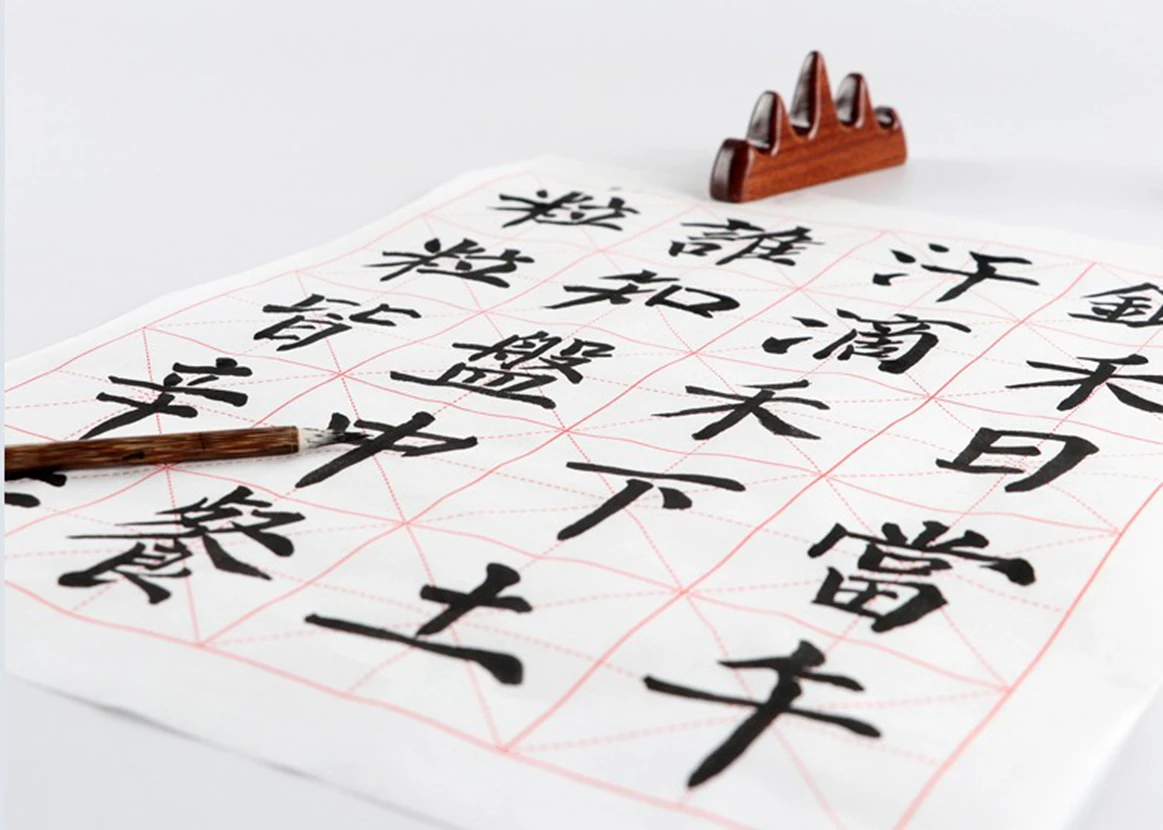 禾日當午
汗滴禾下土
誰知盤中餐
粒粒皆辛